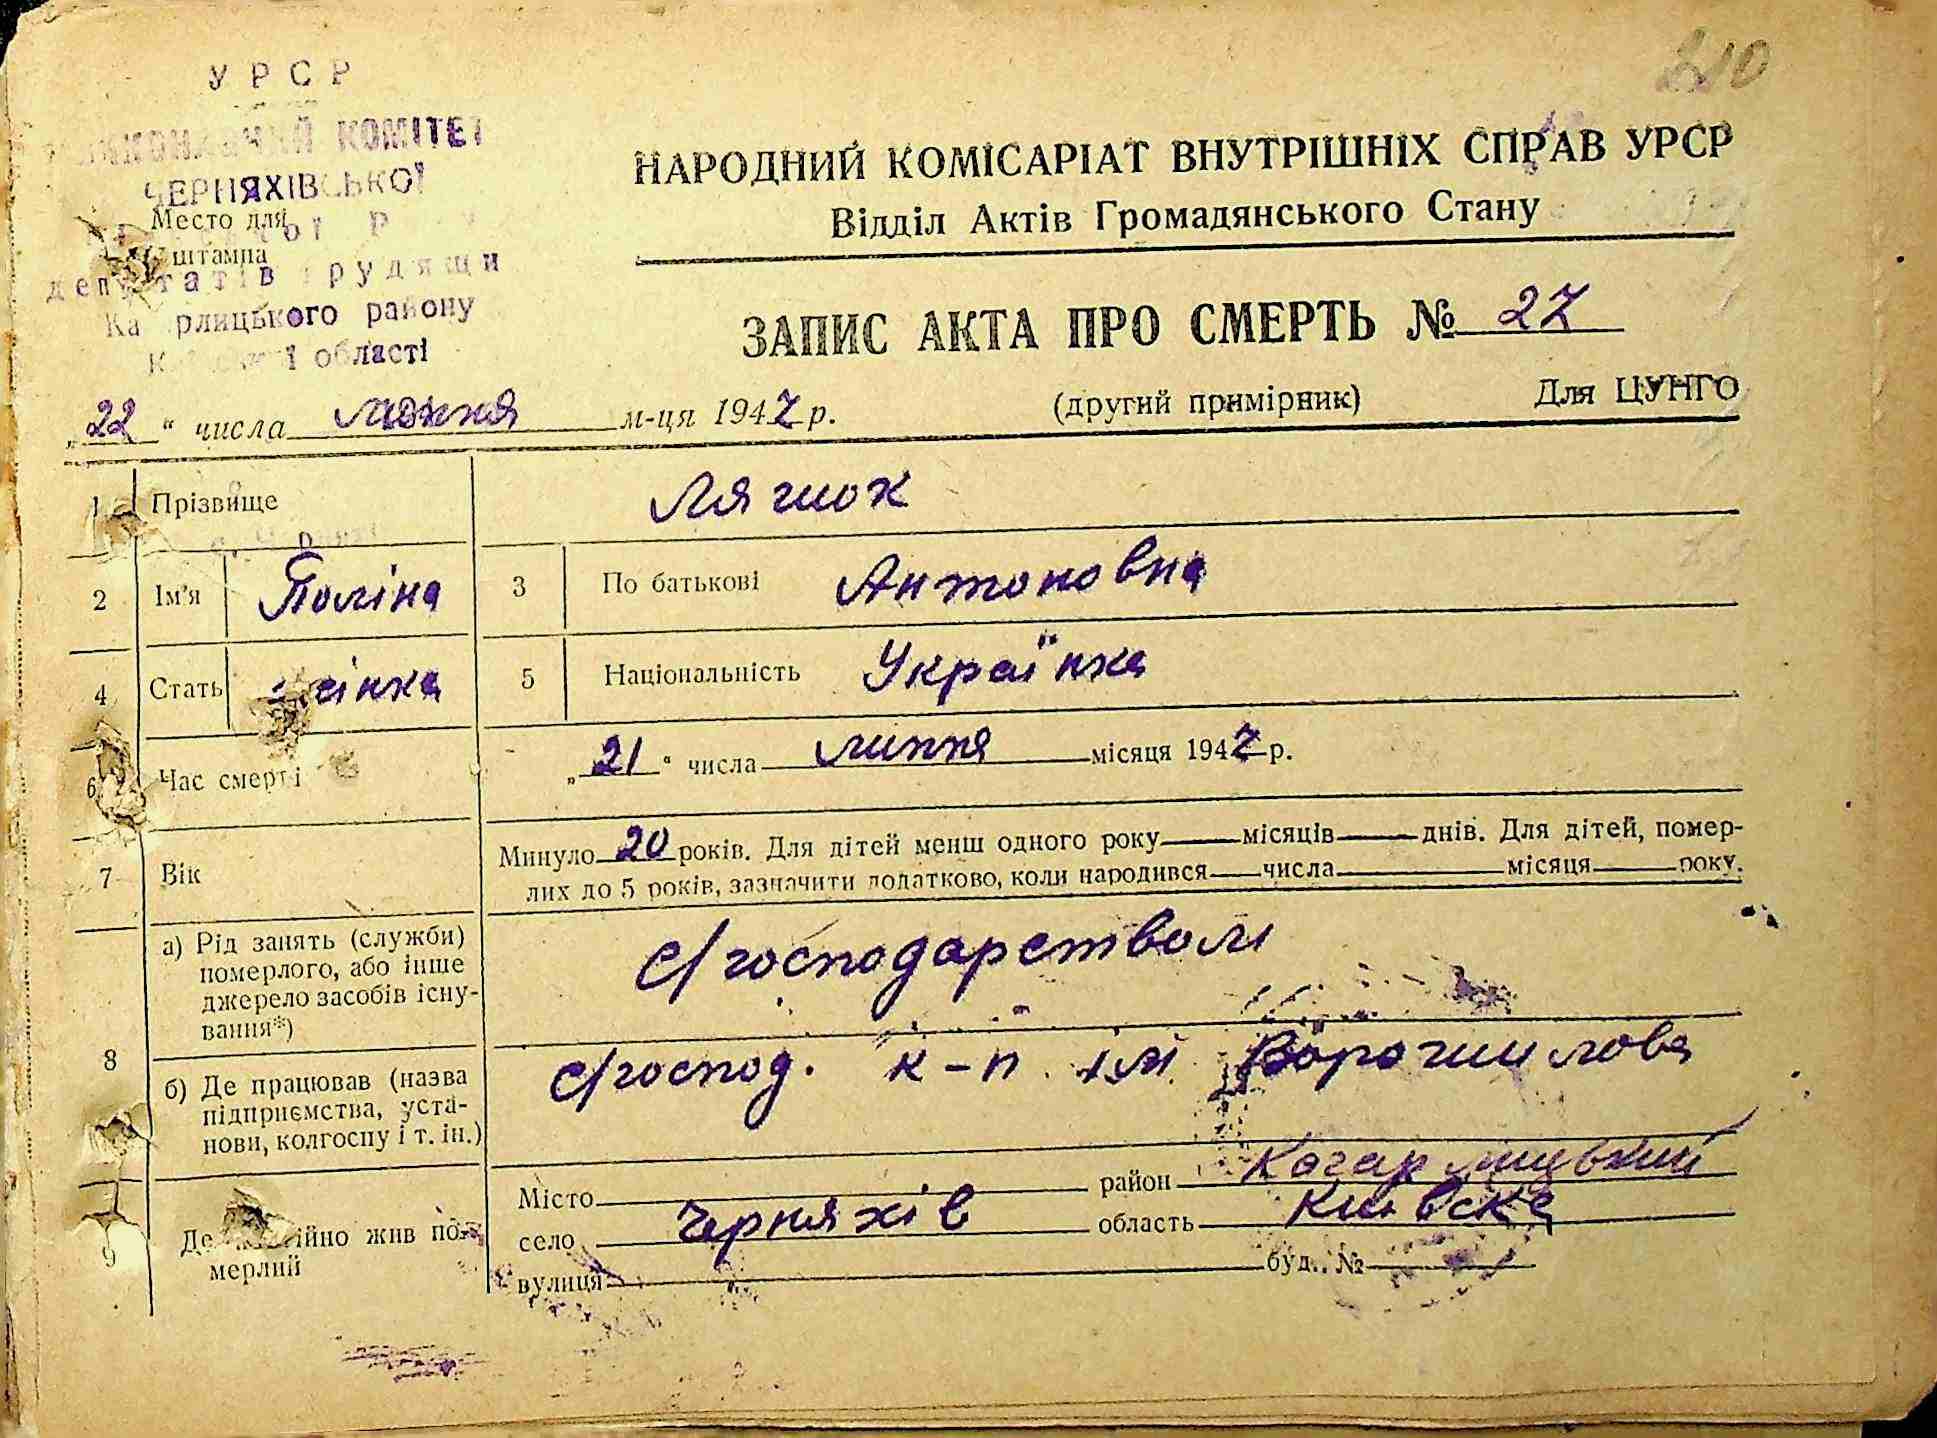 210
УРСР
ВИКОНАВЧИЙ КОМІТЕТ
ЧЕРНЯХІВСЬКОЇ
Место для
штампа
депутатів трудящи
Кагарлицького району
Київської області
НАРОДНИЙ КОМІСАРІАТ ВНУТРІШНІХ СПРАВ УРСР
Відділ Актів Громадянського Стану
ЗАПИС АКТА ПРО СМЕРТЬ № 27
„22“ числа липня м-ця 1947 р. (другий примірник) Для ЦУНГО
1 Прізвище Ляшок
2 Ім'я Поліна 3 По батькові Антоновна
4 Стать жінка 5 Національність Українка
6 Час смерті „21“ числа липня місяця 1947 р.
7 Вік Минуло 20 років. Для дітей менш одного року — місяців — днів. Для дітей, помер-
лих до 5 років, зазначити додатково, коли народився — числа місяця року.
8 а) Рід занять (служби)
померлого, або інше
джерело засобів існу-
вання*)
с/господарством
б) Де працював (назва
підприємства, уста-
нови, колгоспу і т. ін.)
с/господ. к-п ім Ворошилова
9 Де постійно жив по-
мерлий
Місто район Кагарлицький
село Черняхів область Київска
вулиця буд. №